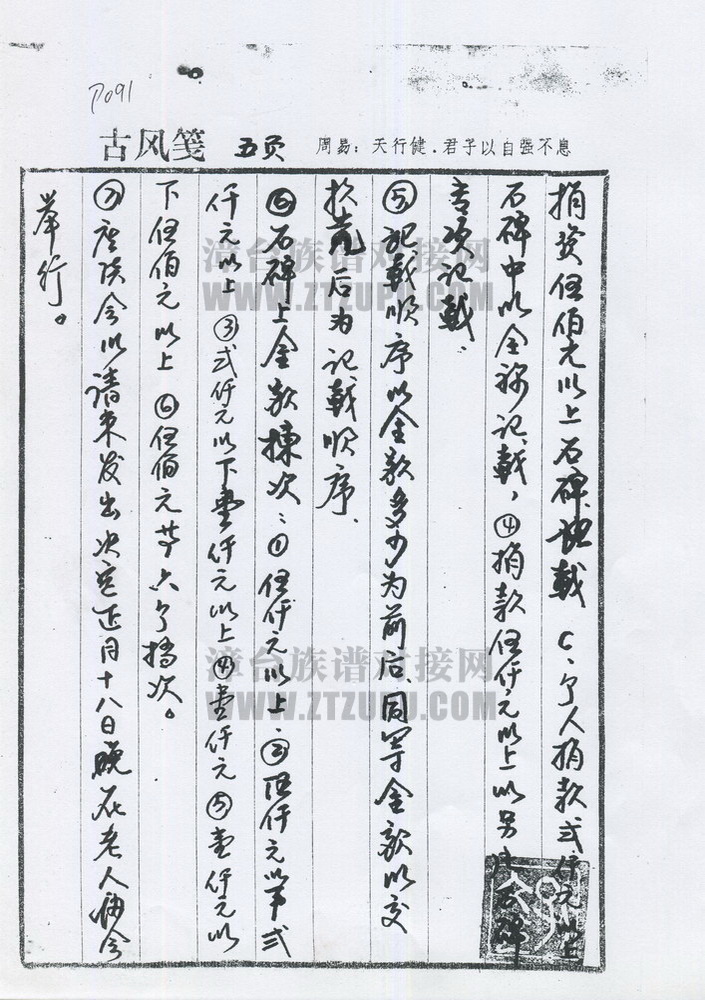 P091
古风笺 五页 周易：天行健．君子以自强不息
捐资伍佰元以上石碑记载 C、个人捐款弍仟元以上
石碑中以全称记载，④捐款伍仟元以上以另 碑
专项记载、
⑤记载顺序以金款多少为前后、同等金款以交
款 后为记载顺序、
⑥石碑上金款 次：①伍仟元以上、②伍仟元以下弍
仟元以上 ③弍仟元以下壹仟元以上④壹仟元 ⑤壹仟元以
下伍佰元以上 ⑥伍佰元共六个 次。
⑦座谈会以请柬发出决定正月十八日晚在老人协会
举行。
漳台族谱对接网
WWW.ZTZUPU.COM
漳台族谱对接网
WWW.ZTZUPU.COM